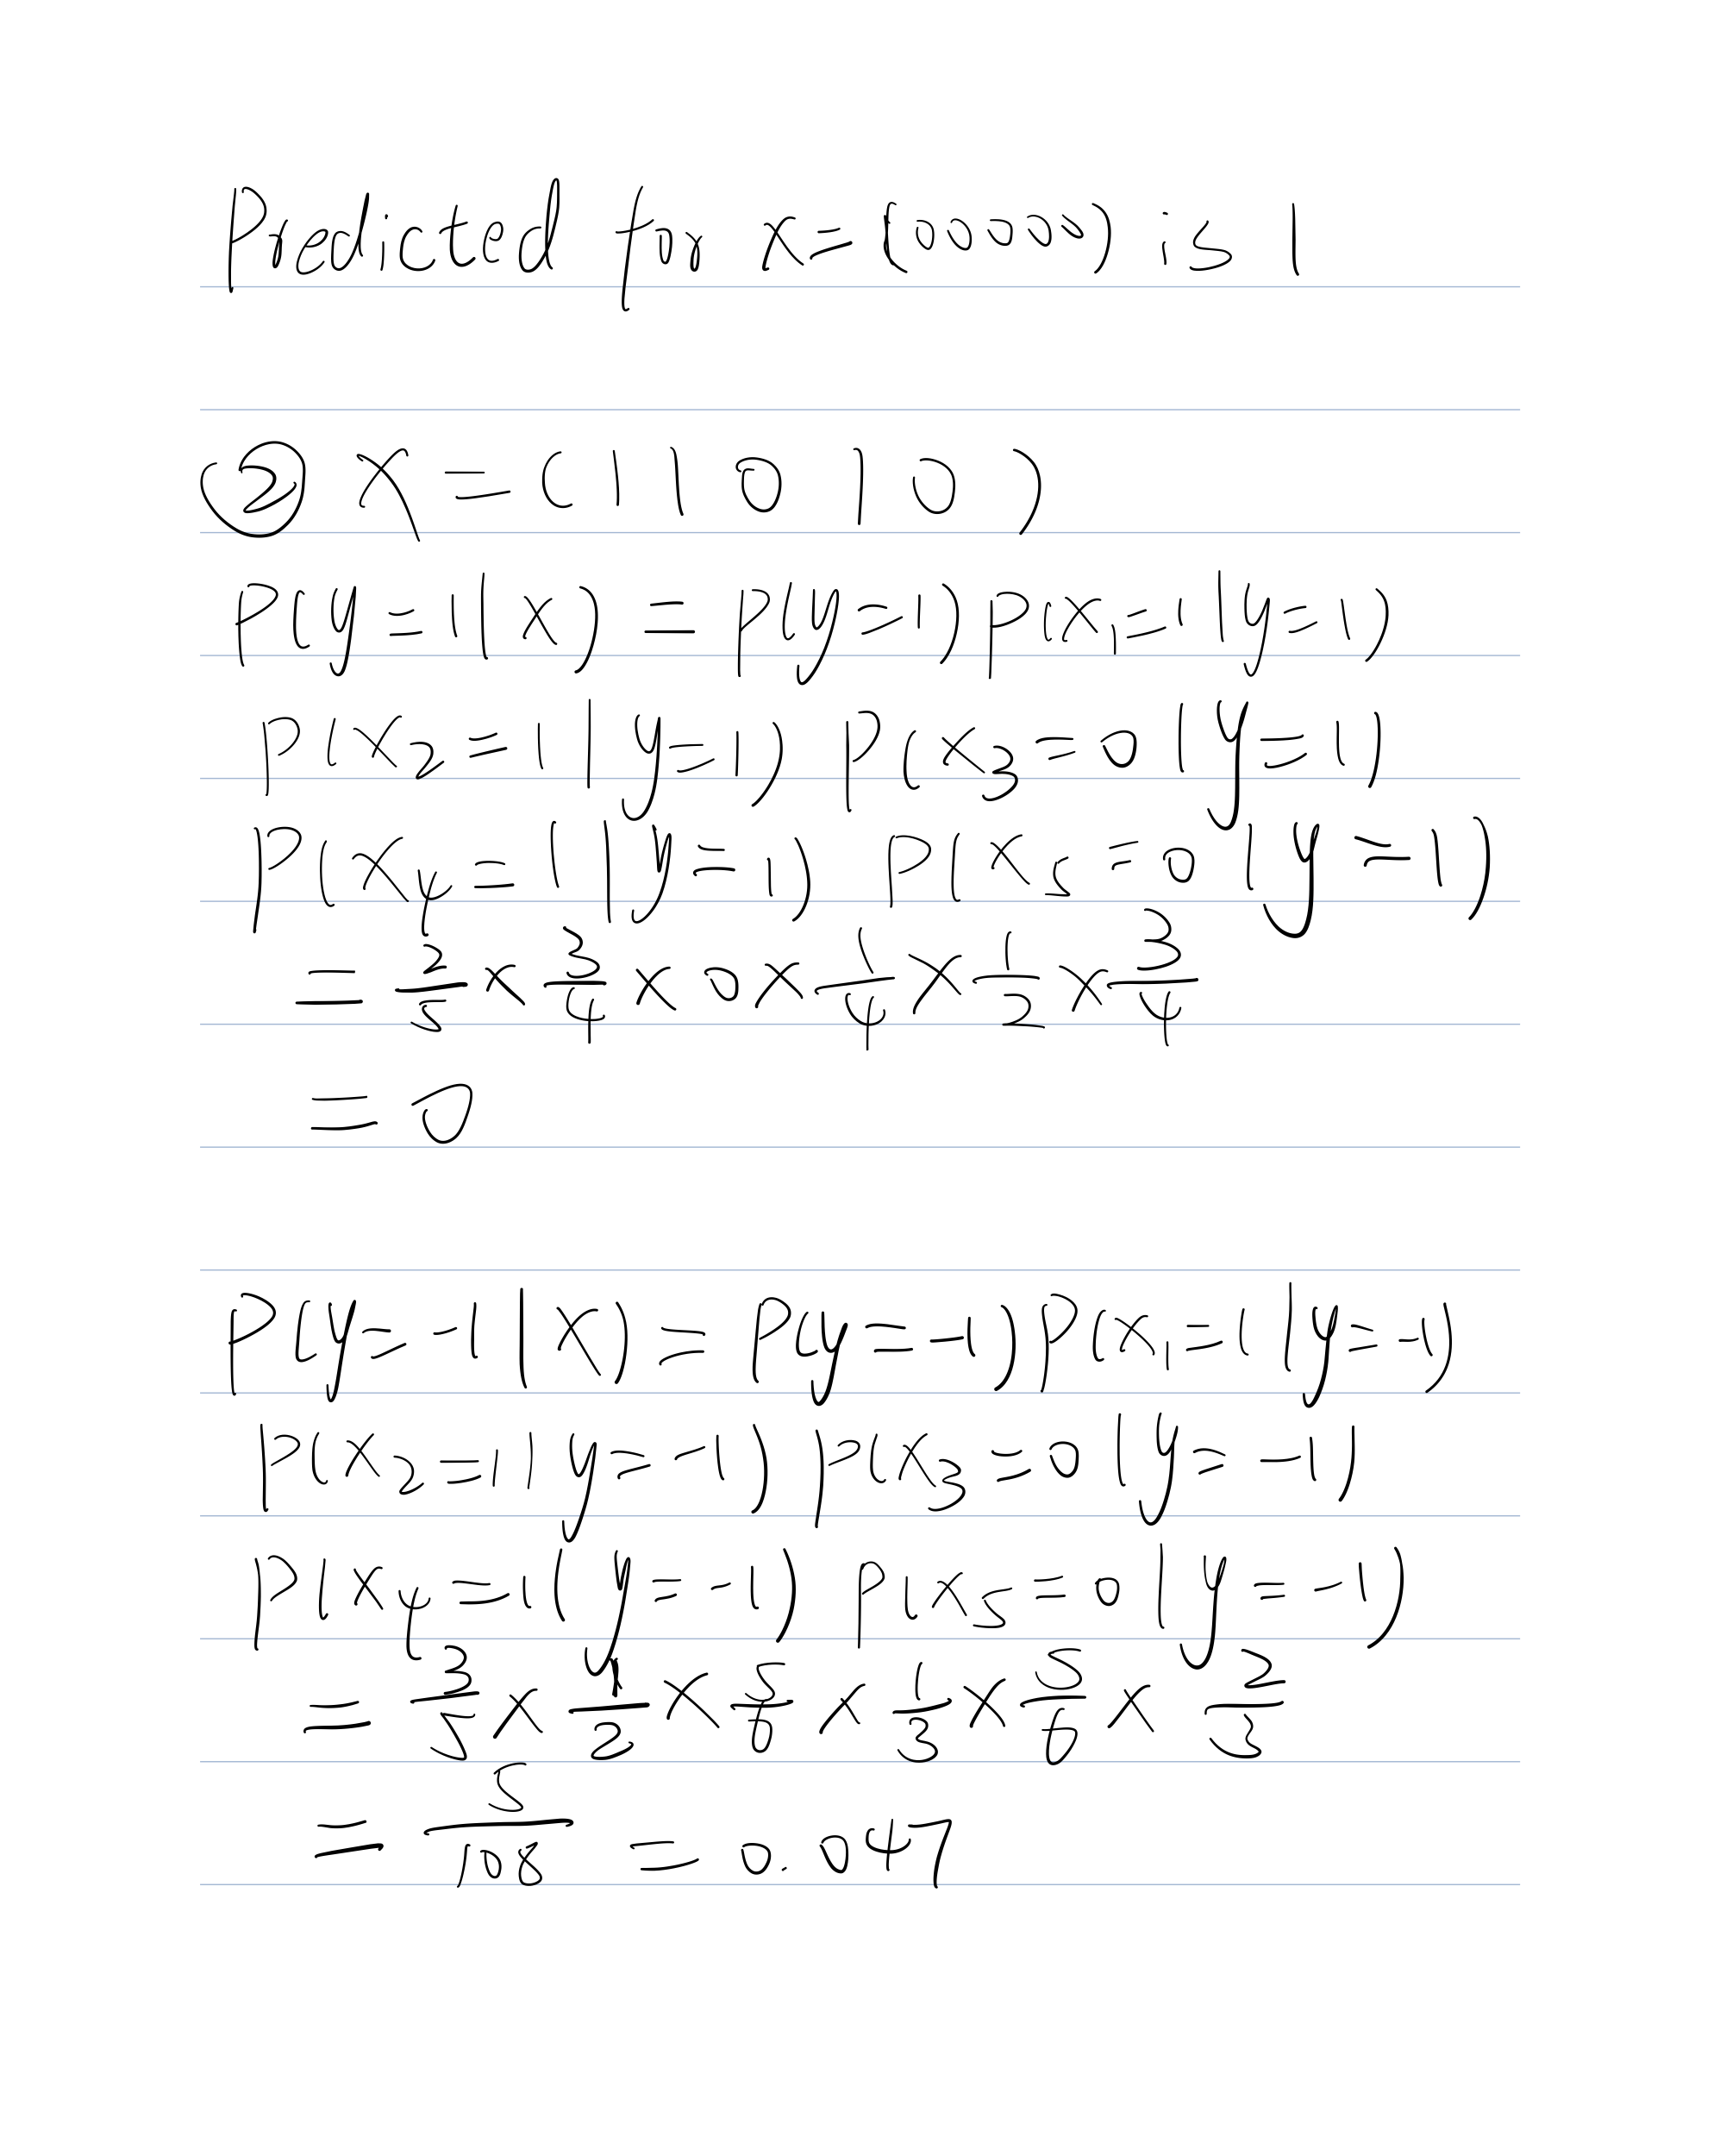 Predicted for x= (00000) is 1
② X = (1 1 0 1 0)
P(y=1|x) = p(y=1) p(x₁=1|y=1)
P(x₂=1|y=1) P(x₃=0|y=1)
P(x₄=1|y=1) P(x₅=0|y=1)
= 2/5 × 3/4 × 0 × 1/4 × 1/2 × 3/4
= 0
P(y=-1|X) = P(y=-1) P(x₁=1|y=-1)
P(x₂=1|y=-1) P(x₃=0|y=-1)
P(x₄=1|y=-1) P(x₅=0|y=-1)
= 3/5 × 1/2 × 5/6 × 1/3 × 5/6 × 2/3
= 5/108 = 0.047